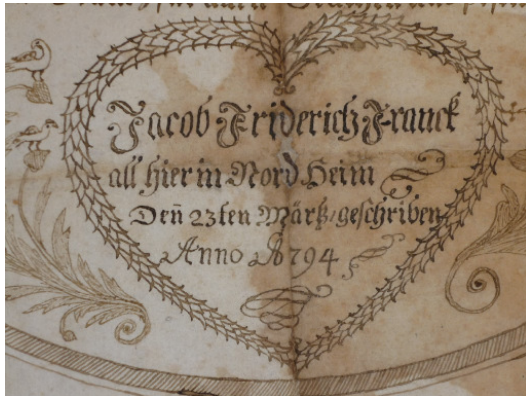 Jacob Friderich Franck
all hier in Nord Heim
Deñ 23ten Märtz geschriben
Anno 1794